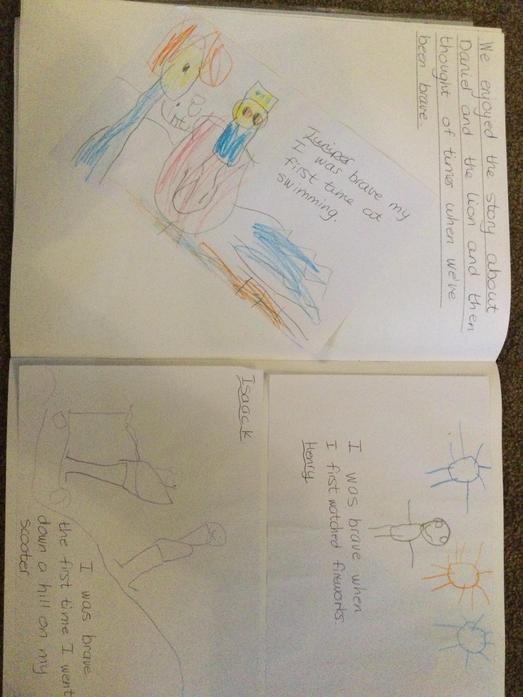 We enjoyed the story about
Daniel and the lion and then
thought of times when we've
been brave.
I was brave my
first time at
swimming.
I was brave when
I first watched fireworks.
Henry
Isaack
I was brave
the first time I went
down a hill on my
scooter